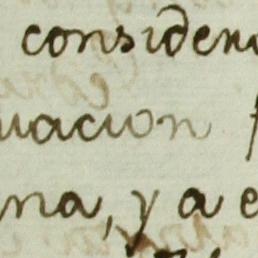 considera
uacion
na, y a e